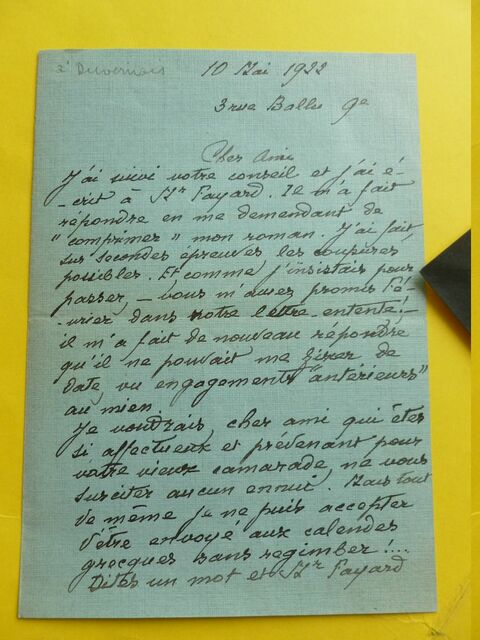 à Duvernois
10 Mai 1922
3 rue Ballu 9e
Cher Ami
J'ai suivi votre conseil et j'ai é-
crit à Mr Fayard. Il m'a fait
répondre en me demandant de
"comprimer" mon roman. J'ai fait
sur secondes épreuves les coupures
possibles. Et comme j'insistais pour
passer, – vous m'aviez promis Fé-
vrier dans notre lettre-entente! –
il m'a fait de nouveau répondre
qu'il ne pouvait me fixer de
date, vu engagements "antérieurs"
au mien.
Je voudrais, cher ami qui êtes
si affectueux et prévenant pour
votre vieux camarade, ne vous
susciter aucun ennui. Mais tout
de même je ne puis accepter
d'être envoyé aux calendes
grecques sans regimber!...
Dites un mot et Mr Fayard